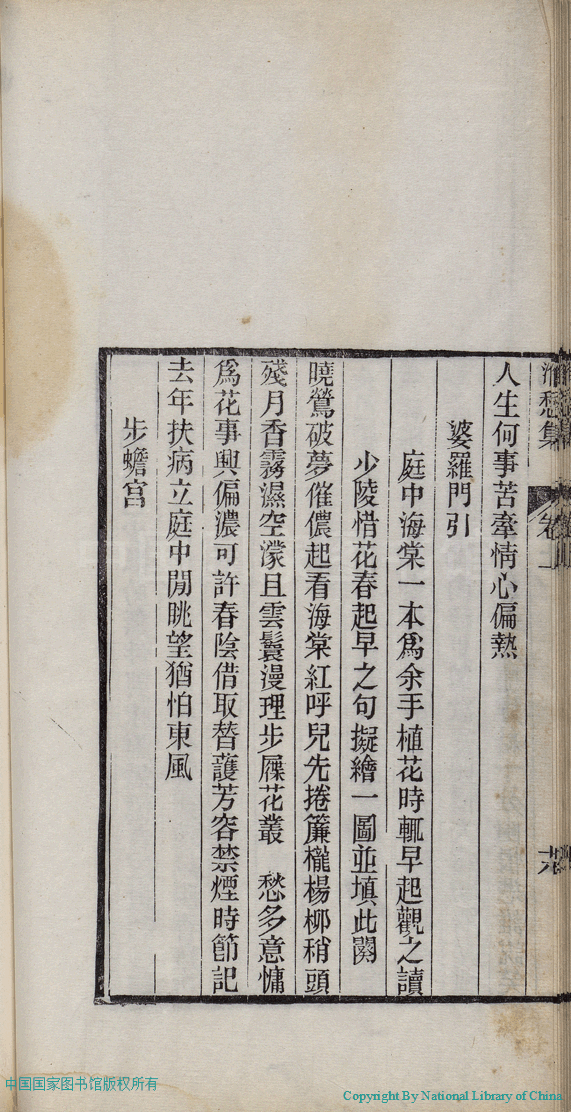 人生何事苦牽情心偏熱
婆羅門引
庭中海棠一本爲余手植花時輒早起觀之讀
少陵惜花春起早之句擬繪一圖並塡此闋
曉鶯破夢催儂起看海棠紅呼兒先捲簾櫳楊柳稍頭
殘月香霧濕空濛且雲鬟漫理步屧花叢 愁多意慵
爲花事興偏濃可許春陰借取替護芳容禁煙時節記
去年扶病立庭中閒眺望猶怕東風
步蟾宮
中国国家图书馆版权所有
Copyright By National Library of China